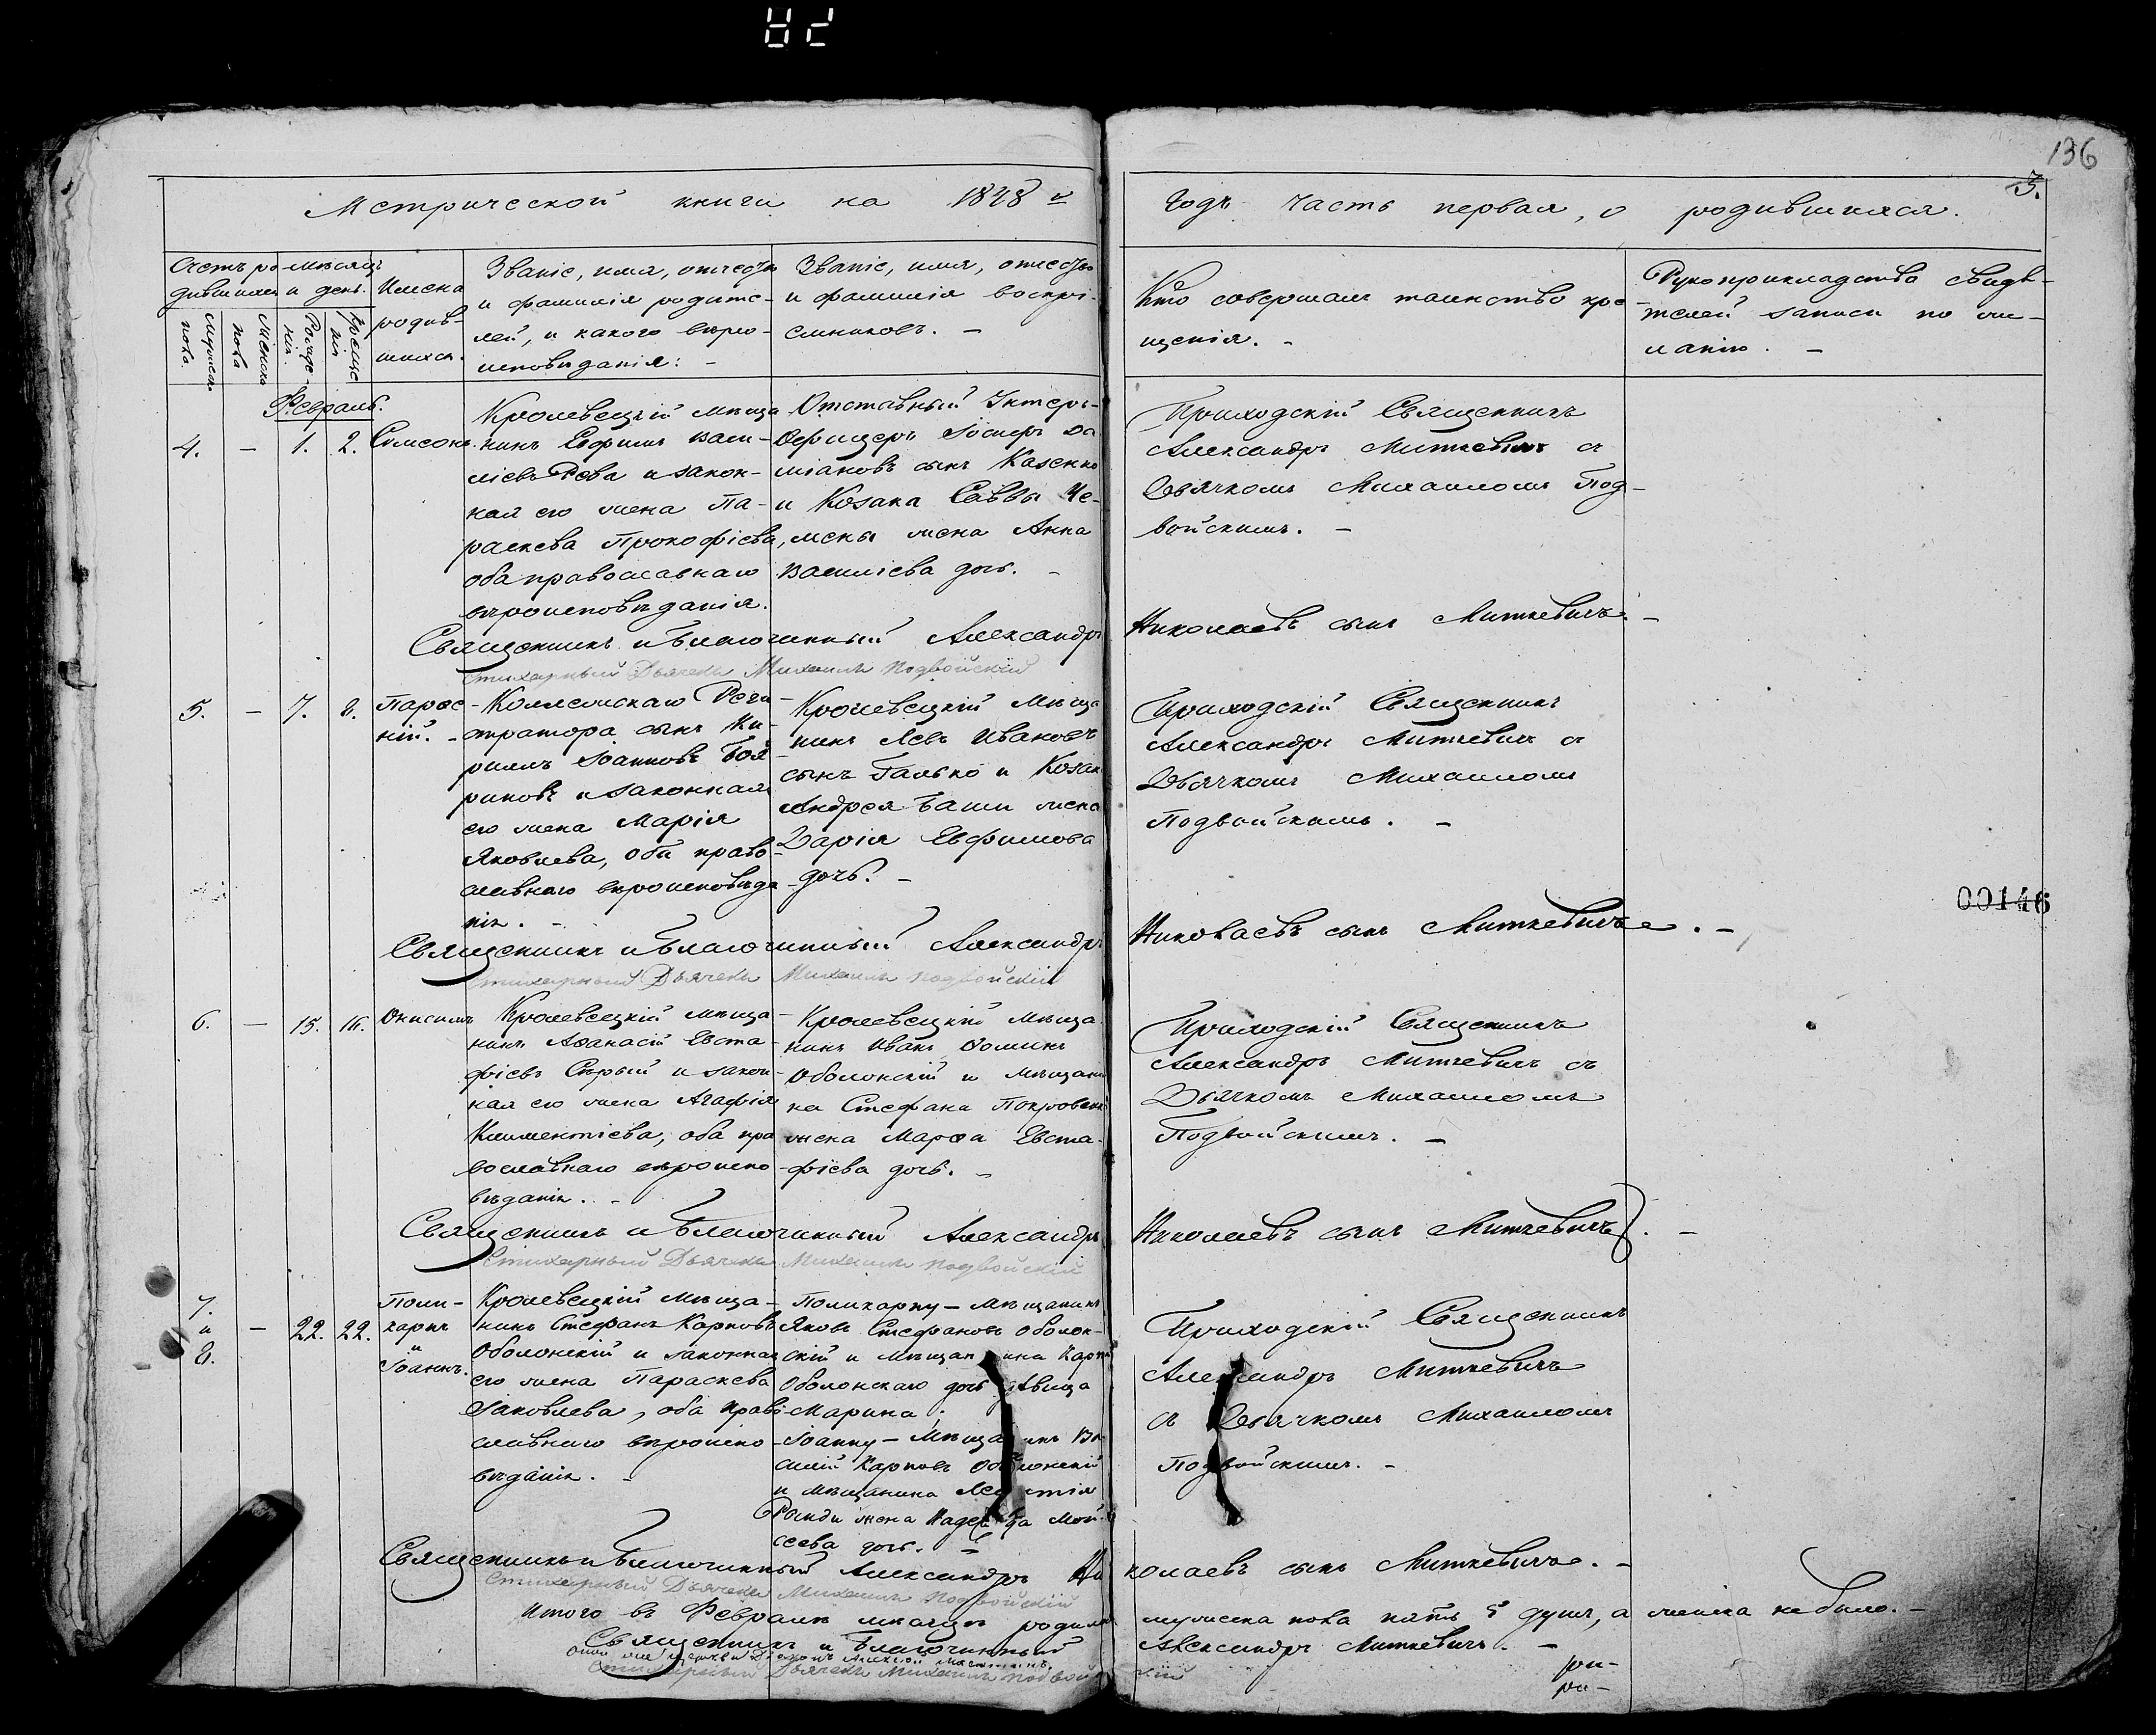 136
3.
Метрической книги на 1848 й
Годъ Часть первая, о родившихся.
Счетъ ро-
дившихся
Мѣсяцъ
и день.
Имена
родив-
шихся.
Званіе, имя, отчество
и фамилія родите-
лей, и какого вѣро-
исповѣданія: -
Званіе, имя, отчество
и фамилія воспрі-
емниковъ. -
Кто совершалъ таинство кре
щенія. -
Рукоприкладство свидѣ-
телей записи по же-
ланію. -
Мужеска
пола.
Женска
пола
Рожде-
нія.
Креще
нія
Февраль.
4. - 1. 2. Симеонъ.
Кролевецкій мѣща
нинъ Ефимъ Васи-
ліевъ Рева и закон-
ная его жена Па-
раскева Прокофіева,
оба православнаго
вѣроисповѣданія.
Отставный Унтеръ-
Офицеръ Іосифъ Да
міановъ сынъ Казенко
и Козака Саввы Че-
жена Анна
Василіева дочь. -
Приходскій Священникъ
Александръ Миткевичъ съ
Дьячкомъ Михаиломъ Под-
войскимъ. -
Священникъ и Благочинный Александръ Николаевъ сынъ Миткевичъ. -
Стихарный Дьячекъ Михаилъ Подвойскій
5. - 7. 8. Парѳе
ній. -
Коллежскаго Реги
стратора сынъ Ки-
риллъ Іоанновъ Боя
риновъ и законная
его жена Марія
Яковлева, оба право-
славнаго вѣроисповѣда
нія. -
Кролевецкій Мѣща
нинъ Левъ Ивановъ
сынъ Галько и Козака
Андрея Баши жена
Дарія Евфимова
дочь. -
Приходскій Священникъ
Александръ Миткевичъ съ
Дьячкомъ Михаиломъ
Подвойскимъ. -
00146
Священникъ и Благочинный Александръ Николаевъ сынъ Миткевичъ. -
Стихарный Дьячекъ Михаилъ Подвойскій
6. - 15. 16. Онисимъ
Кролевецкій мѣща
нинъ Аѳанасій Евста-
фіевъ Сѣрый и закон-
ная его жена Агафія
Климентіева, оба пра
вославнаго вѣроиспо
вѣданія. -
Кролевецкій Мѣща
нинъ Иванъ Ѳоминъ
Оболонскій и Мѣщани
на Стефана
жена Марѳа Евста-
фіева дочь. -
Приходскій Священникъ
Александръ Миткевичъ съ
Дьячкомъ Михаиломъ
Подвойскимъ. -
Священникъ и Благочинный Александръ Николаевъ сынъ Миткевичъ. -
Стихарный Дьячекъ Михаилъ Подвойскій
7.
и
8.
- 22. 22.
Поли-
карпъ
и
Іоаннъ.
Кролевецкій Мѣща-
нинъ Стефанъ Карповъ
Оболонскій и законная
его жена Параскева
Іаковлева, оба право
славнаго вѣроиспо
вѣданія. -
Поликарпу - Мѣщанинъ
Яковъ Стефановъ Оболон-
скій и Мѣщанина Карпа
Оболонскаго дочь дѣвица
Марина;
Іоанну - Мѣщанинъ Ва
силій Карповъ Оболонскій
и мѣщанина
жена Надежда Мой-
сеева дочь. -
Приходскій Священникъ
Александръ Миткевичъ
съ Дьячкомъ Михаиломъ
Подвойскимъ. -
Священникъ и Благочинный Александръ Николаевъ сынъ Миткевичъ. -
Стихарный Дьячекъ Михаилъ Подвойскій
Итого въ Февралѣ мѣсяцѣ родилось мужеска пола пять 5 душъ, а женска не было. -
Священникъ и Благочинный Александръ Миткевичъ. -
Стихарный Дьячекъ Михаилъ Подвойскій